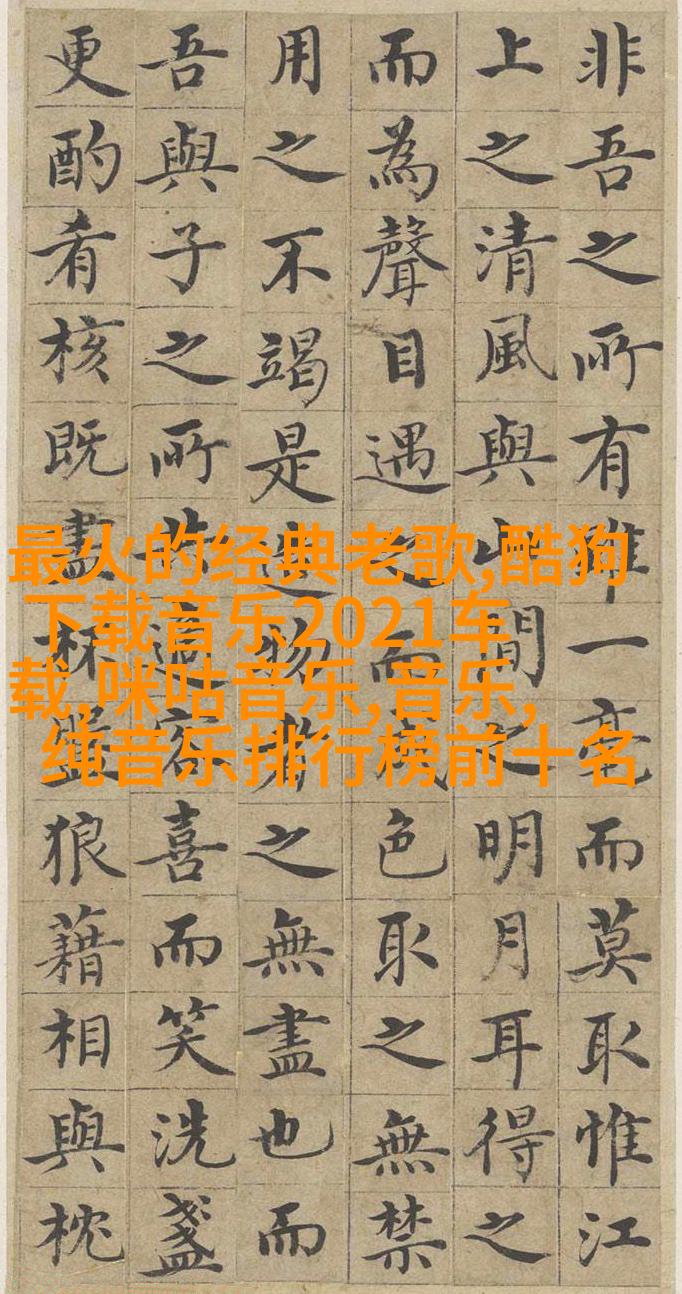 非吾之所有雖一毫而莫取惟江
上之清風與山間之明月耳得之
而為聲目遇之而成色取之無禁
用之不竭是造物者之無盡也而
吾與子之所共適客喜而笑洗盞
更酌肴核既盡杯盤狼藉相與枕
最火的经典老歌,酷狗
下载音乐2021车
载,咪咕音乐,音乐,
纯音乐排行榜前十名